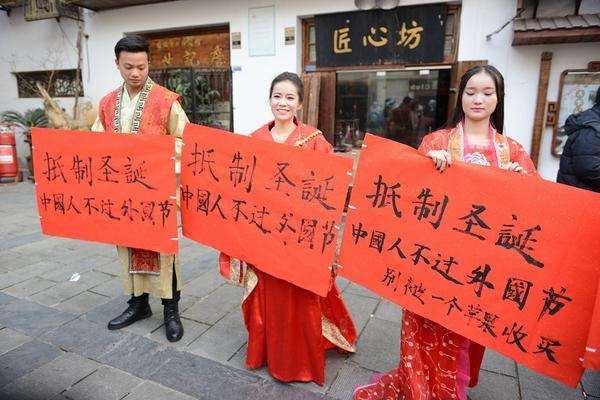 匠心坊
抵制圣誕
中國人不过外國节
抵制圣誕
中國人不过外國节
抵制圣誕
中國人不过外國节
别被一个苹菓收买